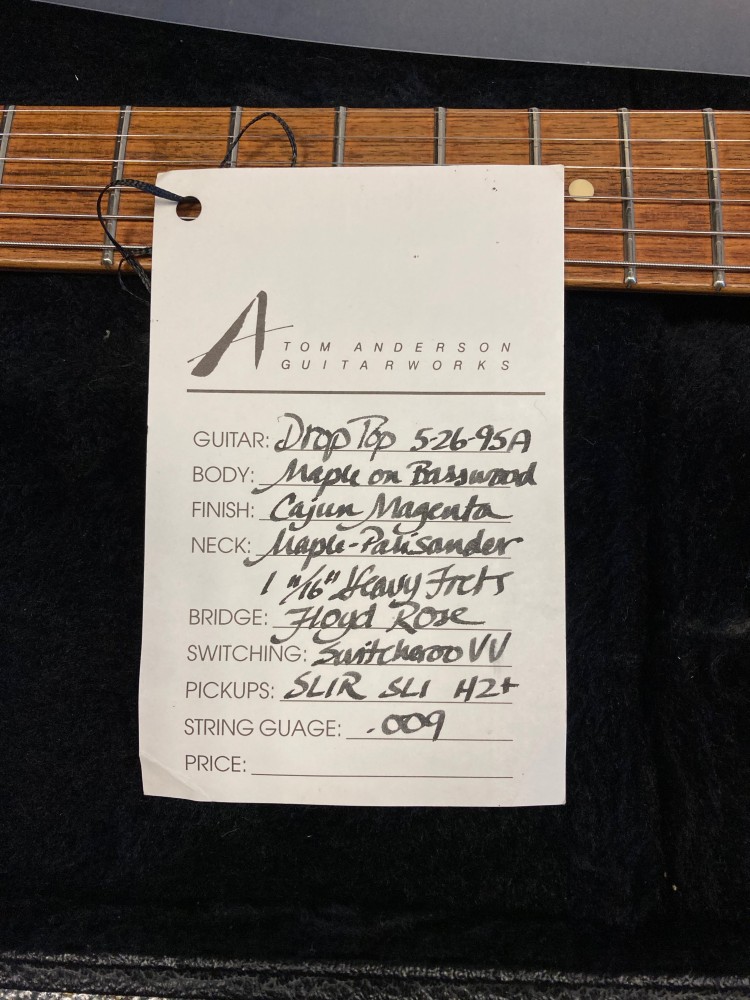 A TOM ANDERSON
GUITARWORKS
GUITAR: Drop Top 5-26-95A
BODY: Maple on Basswood
FINISH: Cajun Magenta
NECK: Maple-Palisander
1 11/16" Heavy Frets
BRIDGE: Floyd Rose
SWITCHING: Switcheroo VV
PICKUPS: SL1R SL1 H2+
STRING GUAGE: .009
PRICE: